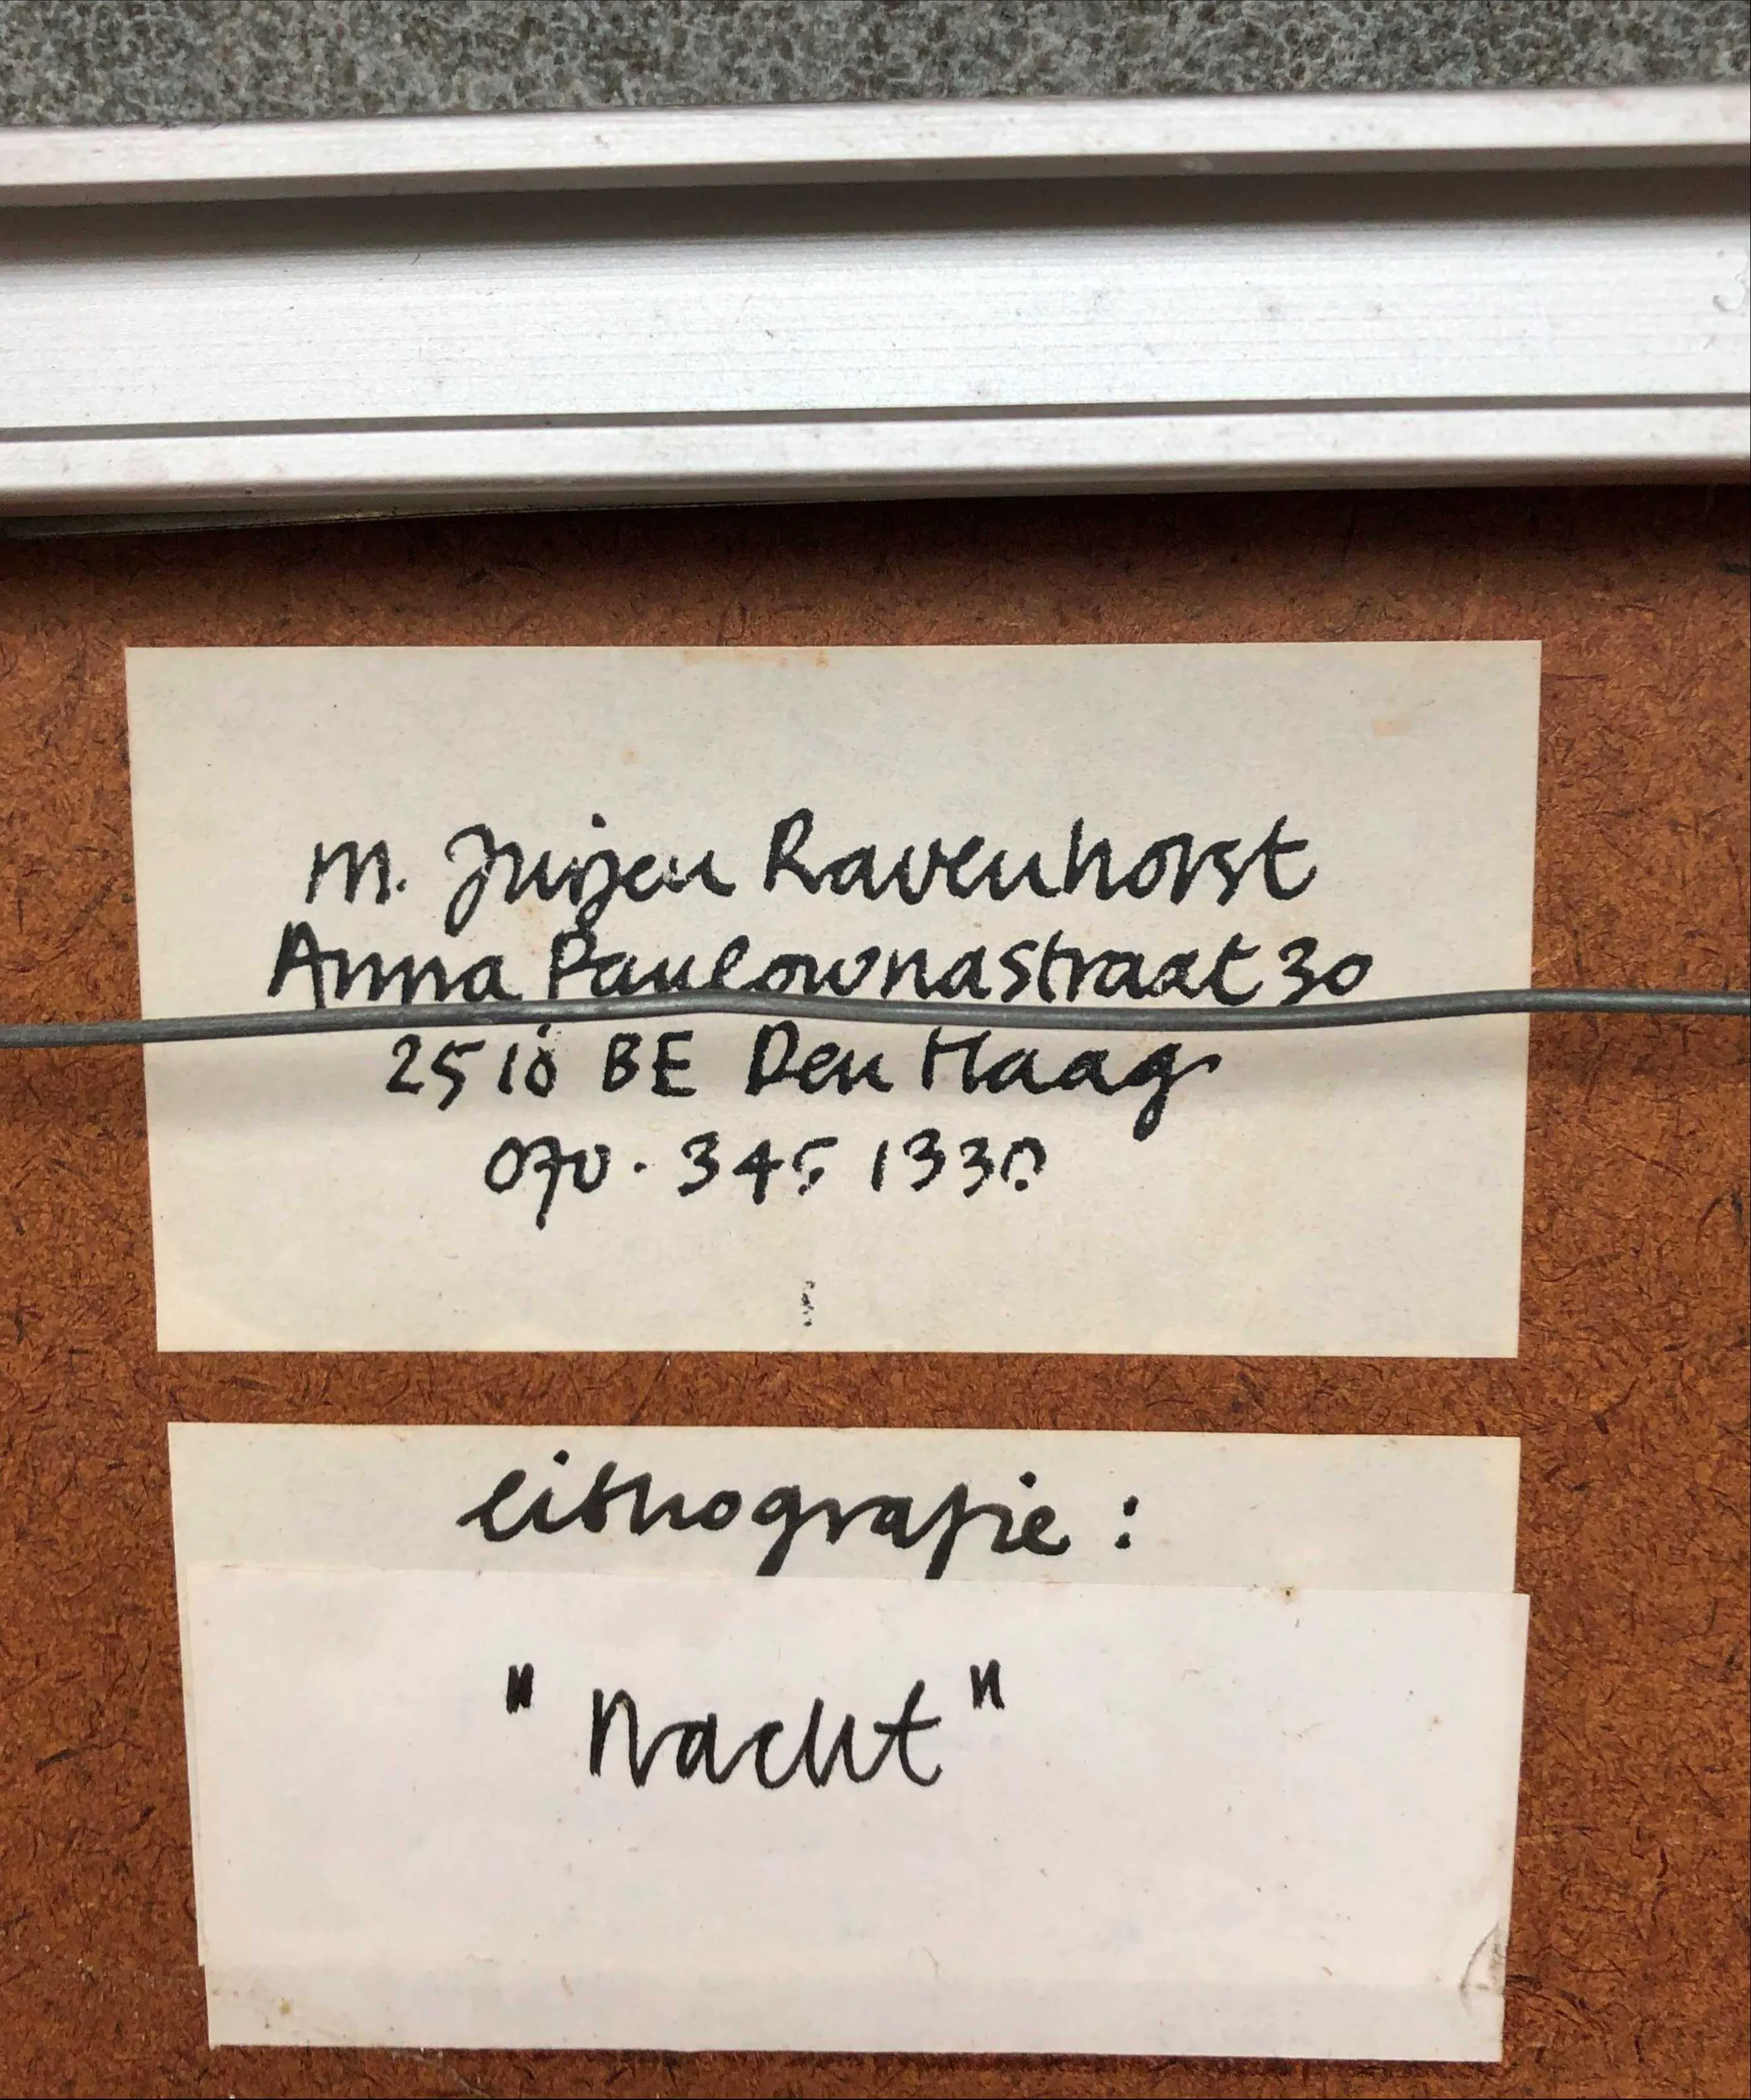 M. Jurjen Ravenhorst
Anna Paulownastraat 30
2518 BE Den Haag
070 · 345 1330
lithografie :
" Nacht "